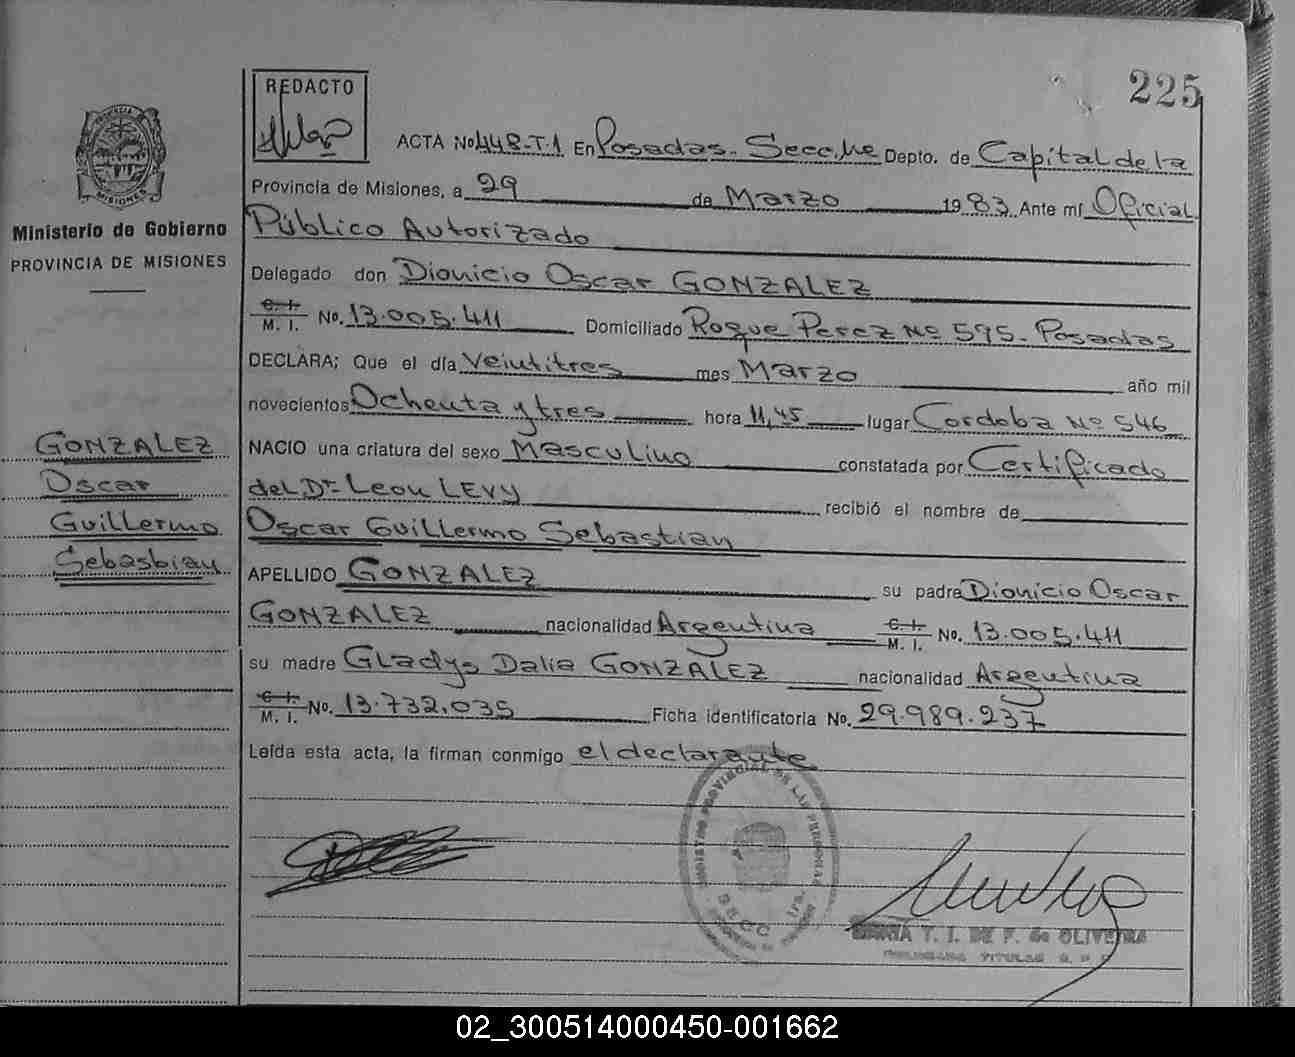 225
REDACTO
ACTA No 448-T.1 En Posadas. Secc. Depto. de Capital de la
Provincia de Misiones, a 29 de Marzo 1983. Ante mí Oficial
Ministerio de Gobierno
PROVINCIA DE MISIONES
Público Autorizado
Delegado don Dionicio Oscar GONZALEZ
C. I.
M. I. No. 13.005.411 Domiciliado Roque Perez Nº 595. Posadas
DECLARA; Que el día Veintitres mes Marzo año mil
novecientos Ochenta y tres hora 11,45 lugar Cordoba Nº 546
NACIO una criatura del sexo Masculino constatada por Certificado
del Dr. Leon LEVY recibió el nombre de
Oscar Guillermo Sebastian
GONZALEZ
Oscar
Guillermo
Sebasbian
APELLIDO GONZALEZ su padre Dionicio Oscar
GONZALEZ nacionalidad Argentina C. I.
M. I. No. 13.005.411
su madre Gladys Dalia GONZALEZ nacionalidad Argentina
C. I.
M. I. No. 13.732.035 Ficha identificatoria No. 29.989.237
Leída esta acta, la firman conmigo el declarante
T. I. DE F. de OLIVEIRA
02_300514000450-001662